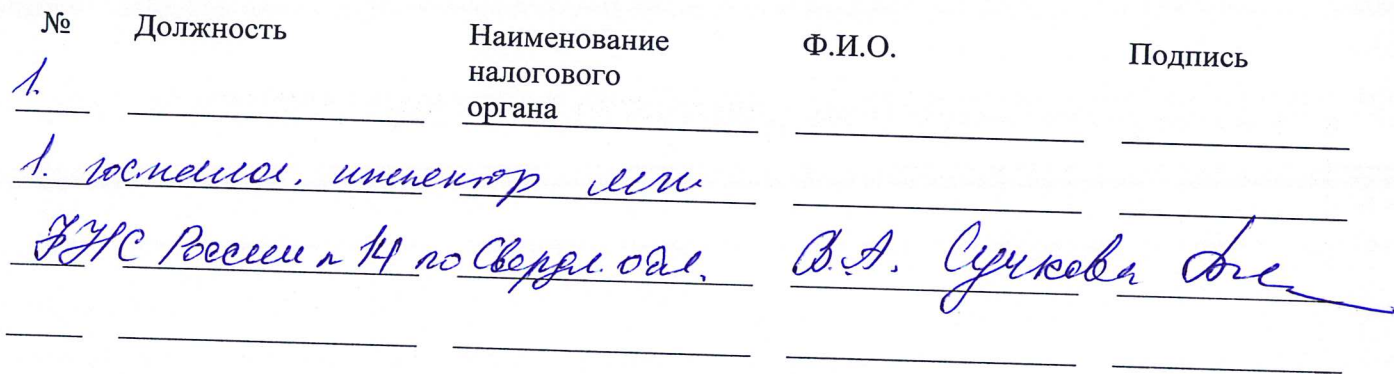 № Должность Наименование налогового органа Ф.И.О. Подпись
1.
1. госналог. инспектор
ФНС России № 14 по Свердл. обл. В.А. Сучкова